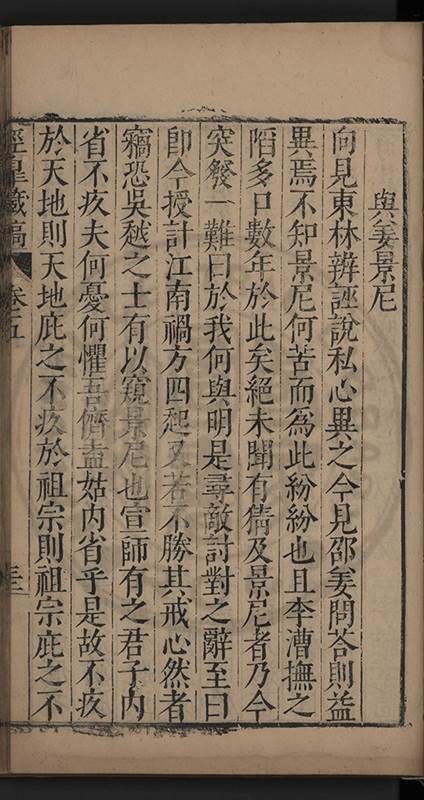 與姜景尼
向見東林辨誣說私心異之今見邵姜問荅則益
異焉不知景尼何苦而為此紛紛也且李漕撫之
䧟多口數年於此矣絕未聞有猜及景尼者乃今
突發一難曰於我何與明是尋敵討對之辭至曰
卽今授計江南禍方四起又若不勝其戒心然者
竊恐吳越之士有以窺景尼也宣師有之君子內
省不疚夫何憂何懼吾儕盍姑內省乎是故不疚
於天地則天地庇之不疚於祖宗則祖宗庇之不
涇臯藏稿
卷五
三